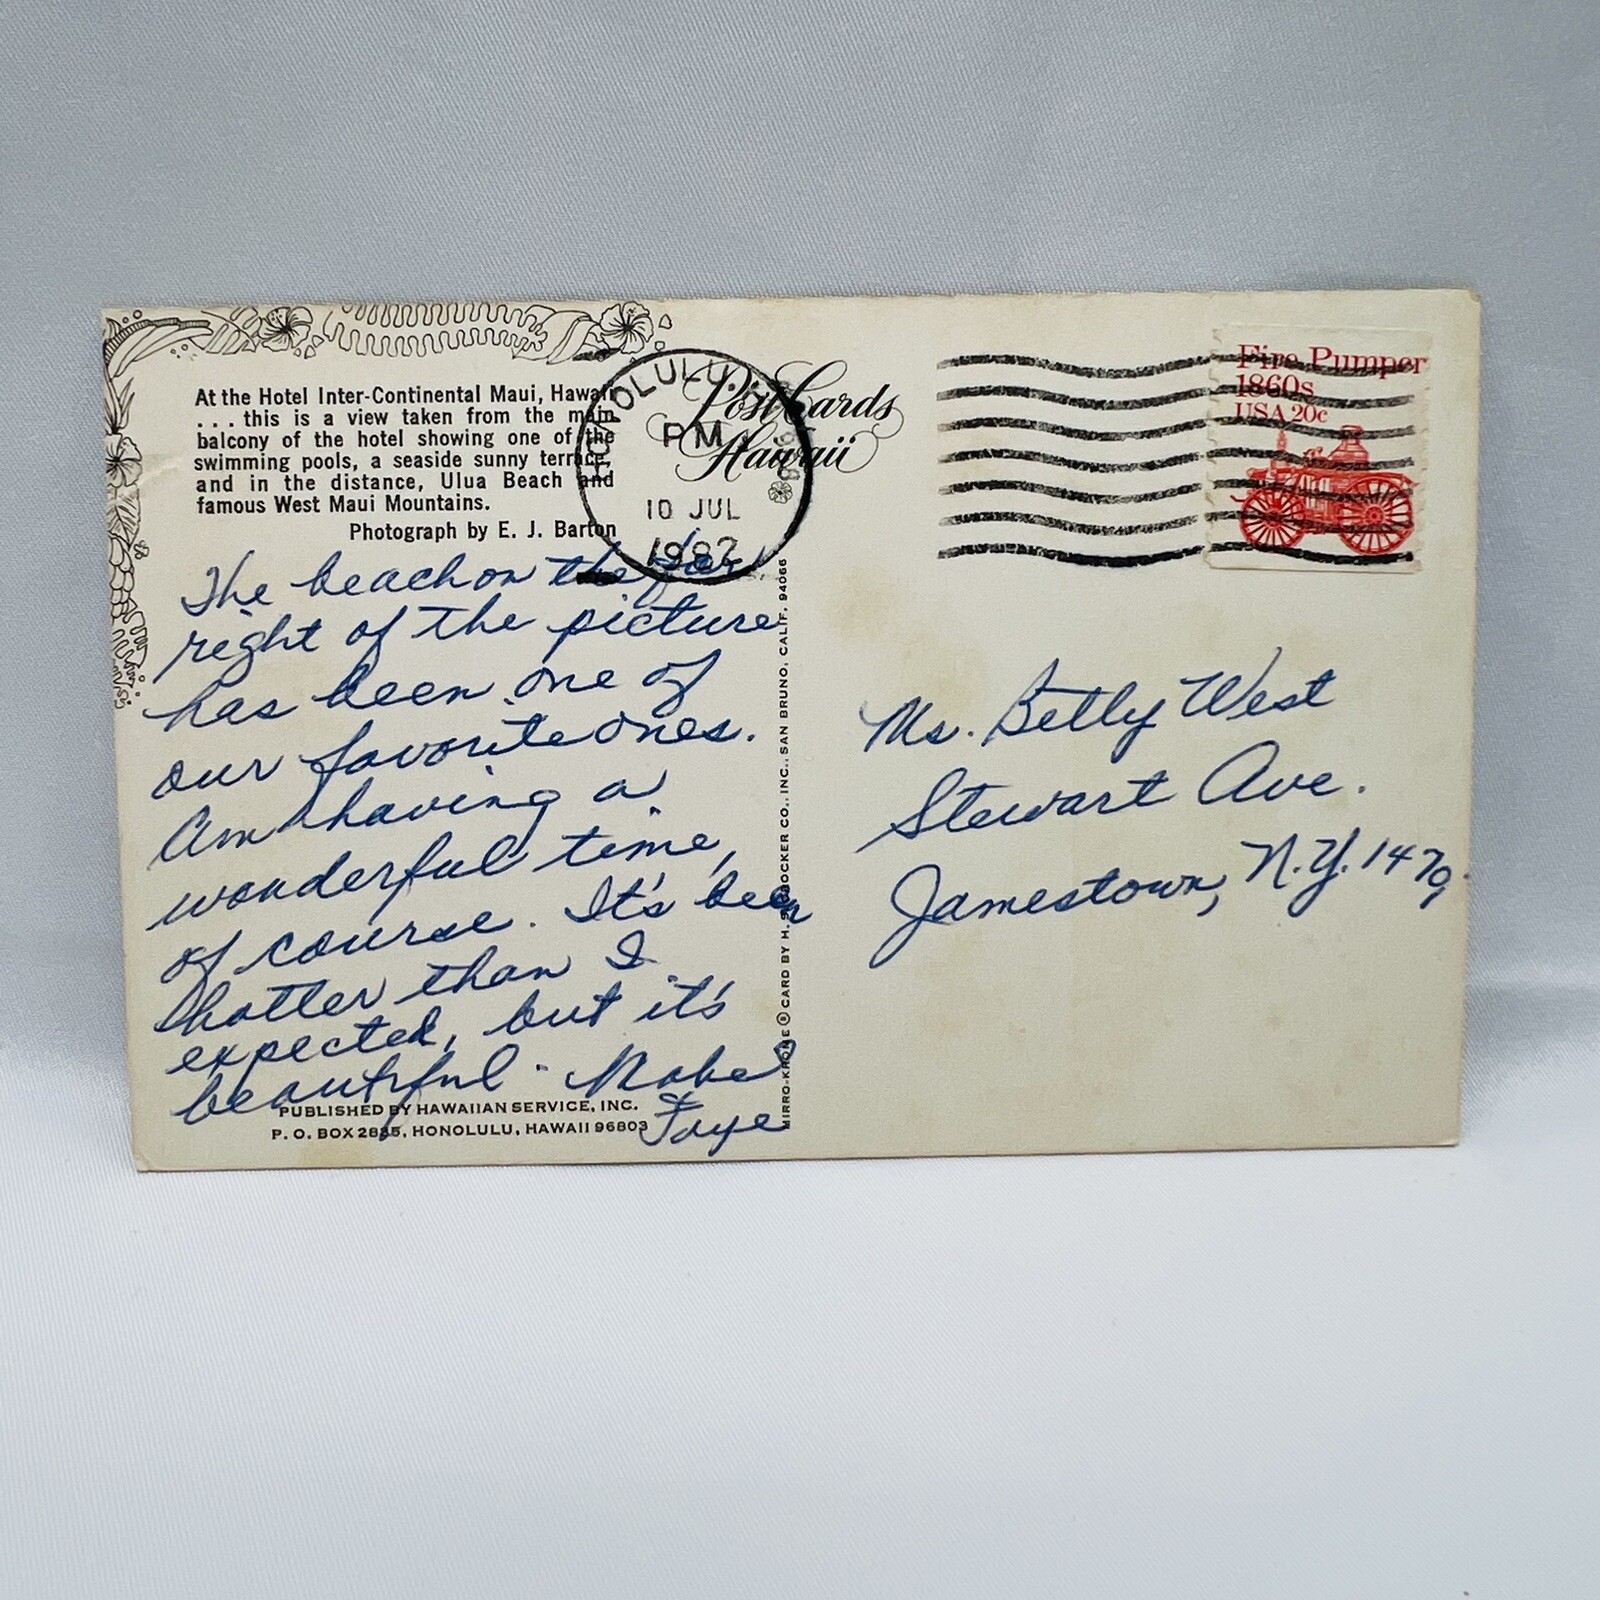 At the Hotel Inter-Continental Maui, Hawaii
. . . this is a view taken from the main
balcony of the hotel showing one of the
swimming pools, a seaside sunny terrace,
and in the distance, Ulua Beach and
famous West Maui Mountains.
Photograph by E. J. Barton
The beach on the far
right of the picture
has been one of
our favorite ones.
Am having a
wonderful time,
of course. It's been
hotter than I
expected, but it's
beautiful.
&
Faye
PUBLISHED BY HAWAIIAN SERVICE, INC.
P. O. BOX 2835, HONOLULU, HAWAII 96803
HONOLULU,
PM
10 JUL
1982
Post Cards
Hawaii
MIRRO-KROME ® CARD BY H. S. CROCKER CO., INC., SAN BRUNO, CALIF. 94066
Fire Pumper
1860s
USA 20c
Ms. Betty West
Stewart Ave.
Jamestown, N.Y. 1470